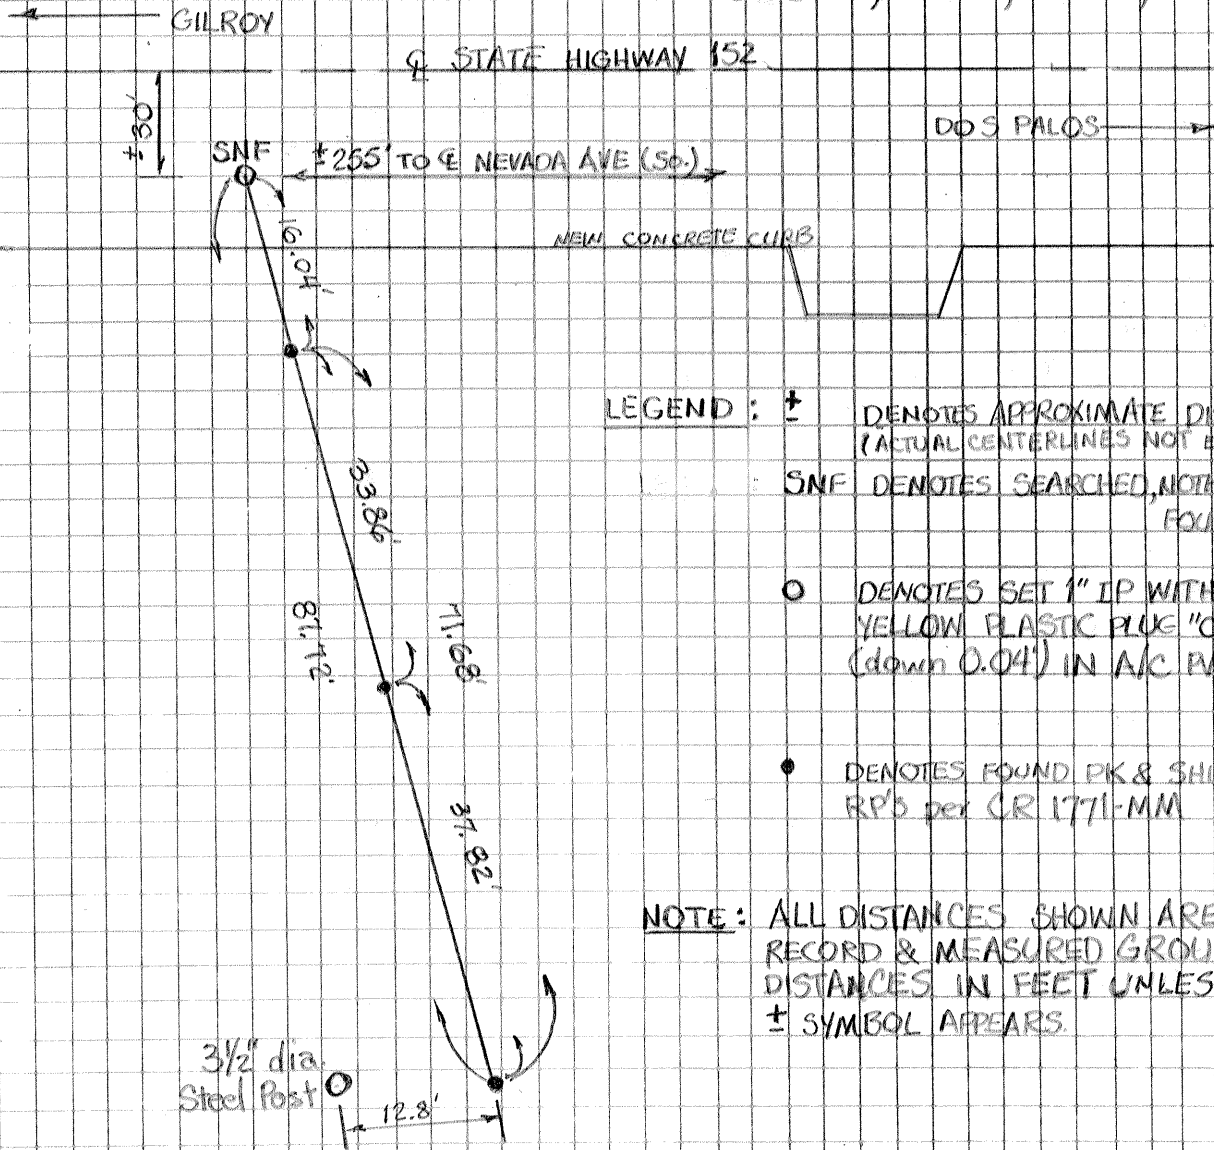 GILROY
℄ STATE HIGHWAY 152
±30'
DOS PALOS
SNF
±255' TO ℄ NEVADA AVE (So.)
NEW CONCRETE CURB
16.04'
LEGEND : ± DENOTES APPROXIMATE
(ACTUAL CENTERLINES NOT
SNF DENOTES SEARCHED,
33.86'
DENOTES SET 1" IP WITH
YELLOW PLASTIC PLUG
(down 0.04') IN A/C
87.72'
71.68'
DENOTES FOUND PK &
RP'S per CR 1771-MM
37.82'
NOTE: ALL DISTANCES SHOWN ARE
RECORD & MEASURED
DISTANCES IN FEET UNLES
± SYMBOL APPEARS.
3½" dia.
Steel Post
12.8'